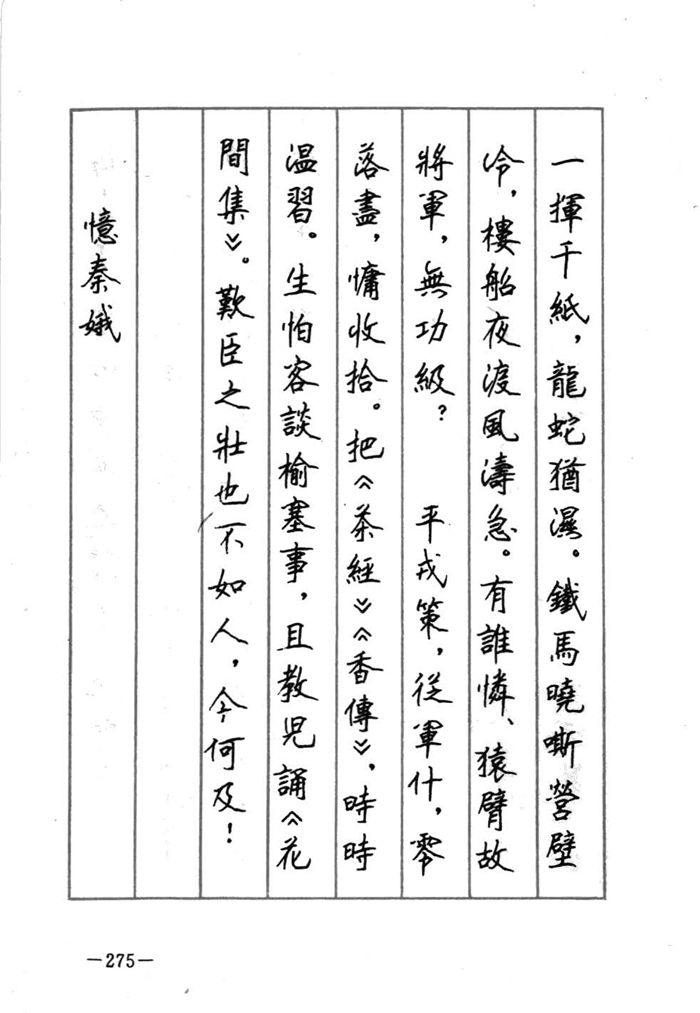 一揮千紙，龍蛇猶濕。鐵馬曉嘶營壁
冷，樓船夜渡風濤急。有誰憐、猿臂故
將軍，無功級？　平戎策，從軍什，零
落盡，慵收拾。把《茶經》《香傳》，時時
温習。生怕客談榆塞事，且教児誦《花
間集》。歎臣之壯也不如人，今何及！
憶秦娥
—275—